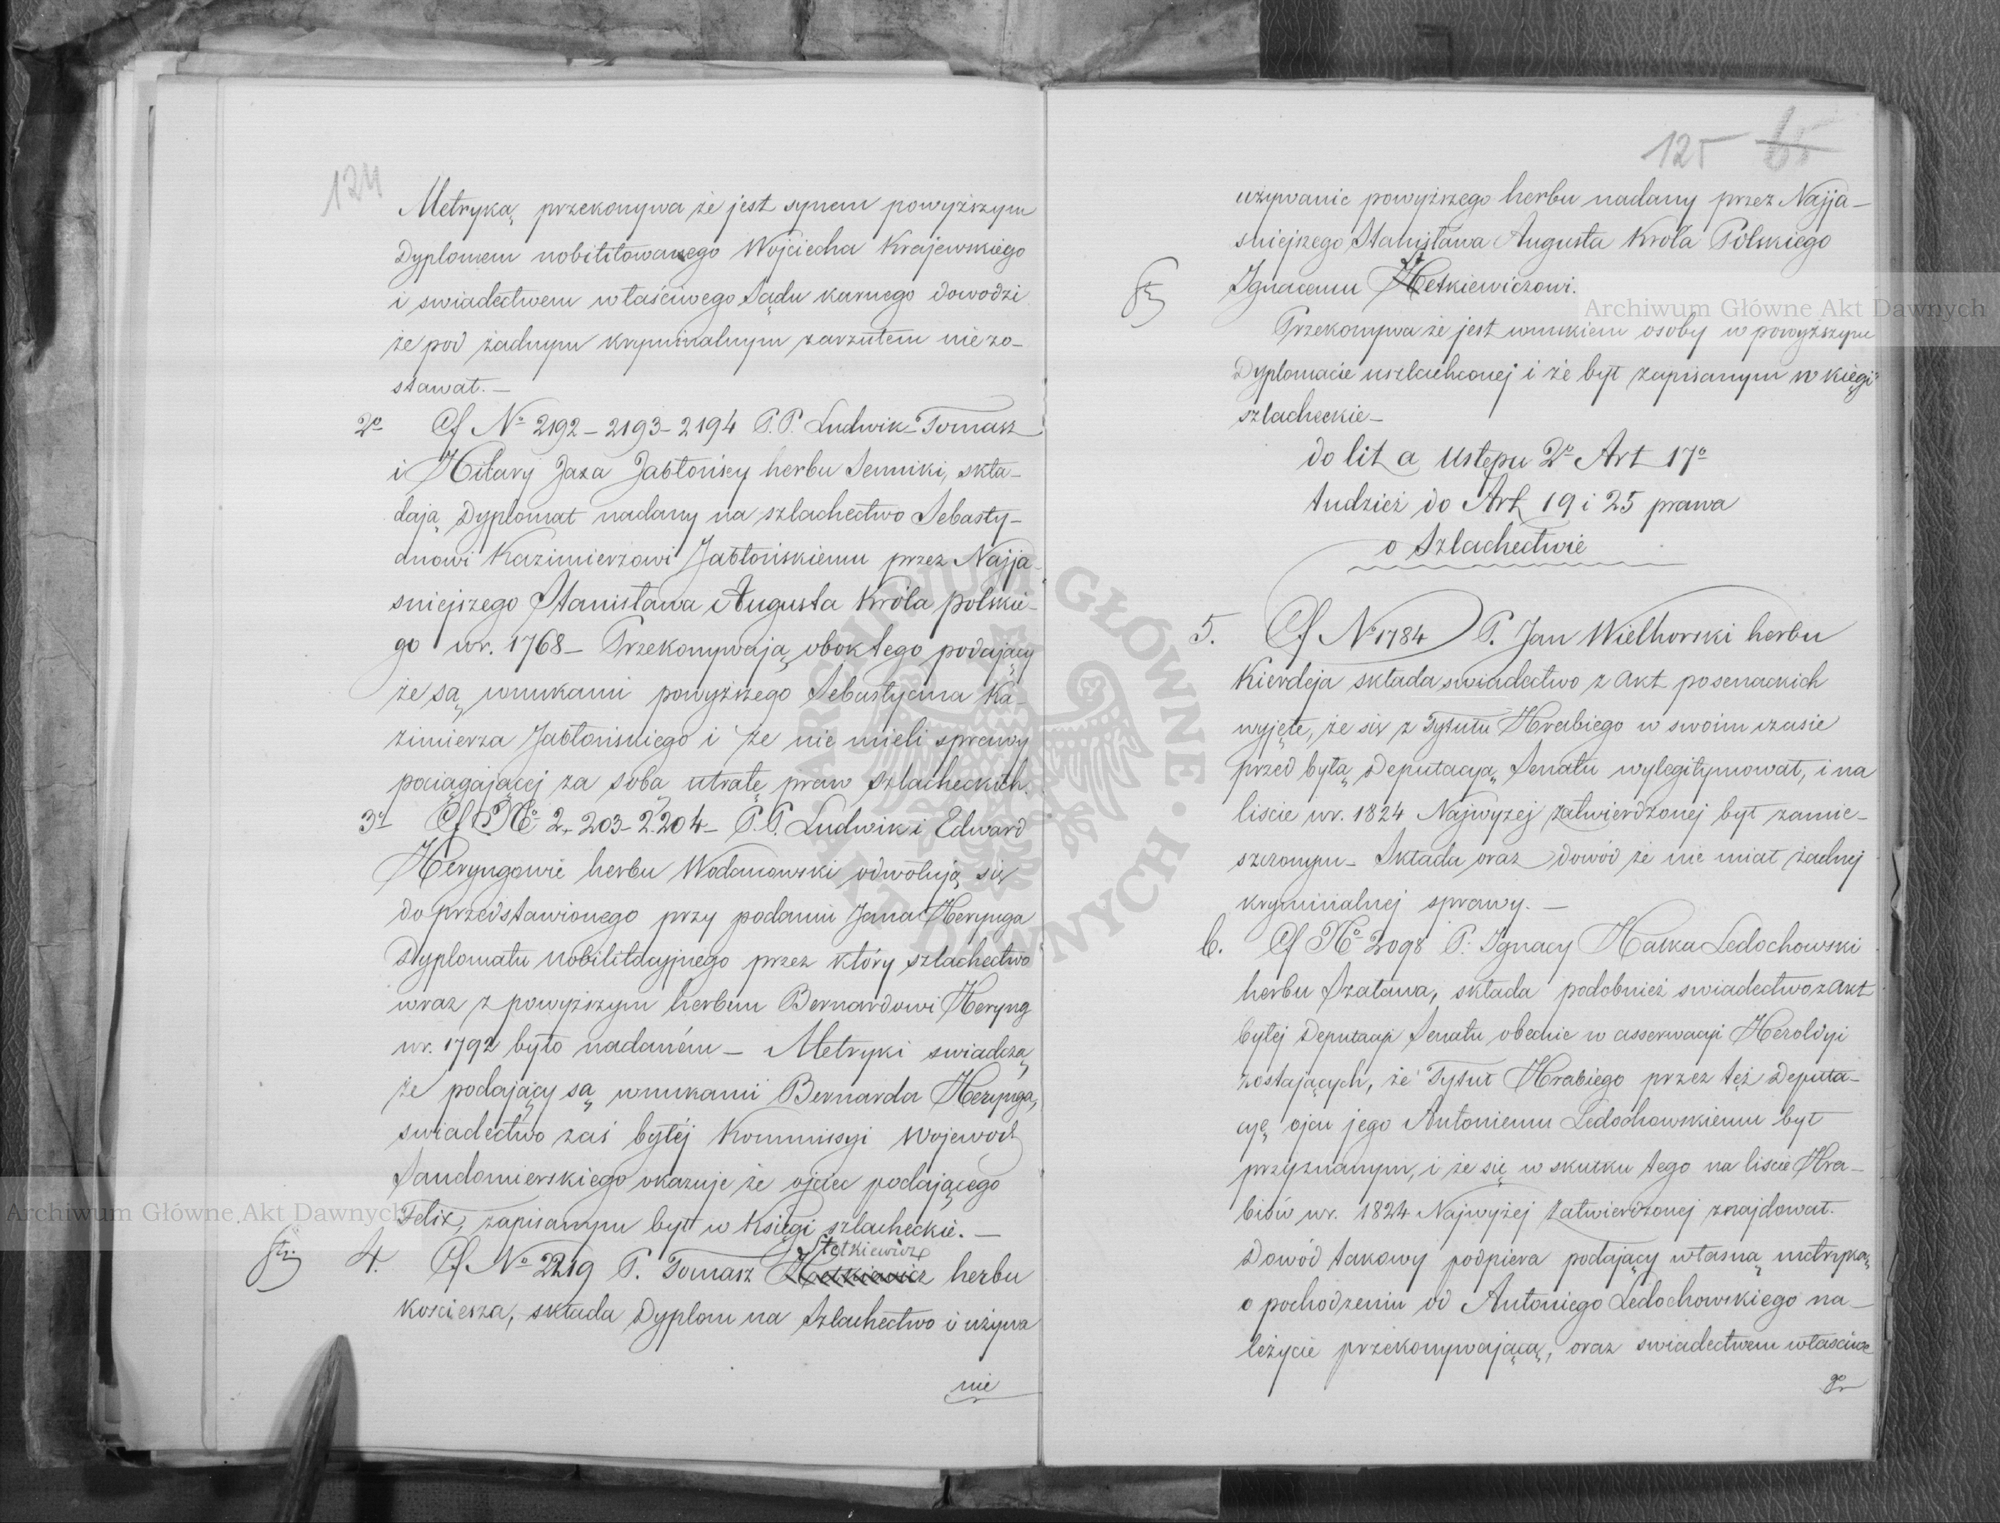 124
Metryką przekonywa że jest synem powyższym
Dyplomem nobilitowanego Wojciecha Krajewskiego
i swiadectwem właściwego Sądu karnego dowodzi
że pod żadnym kryminalnym zarzutem nie zo-
stawał. —
2o Cf No 2192 – 2193 – 2194 P.P. Ludwik Tomasz
i Hilary Jaxa Jabłońscy herbu Senniki, skła-
dają Dyplomat nadany na szlachectwo Sebasty-
anowi Kazimierzowi Jabłońskiemu przez Najja-
sniejszego Stanisława Augusta Króla polskie-
go w r. 1768 – Przekonywają obok tego podający
że są wnukami powyższego Sebastyana Ka-
zimierza Jabłońskiego i że nie mieli sprawy
pociągającej za sobą utratę praw szlacheckich.
3o Cf No 2.203 – 2.204 – P.P. Ludwik i Edward
Heryngowie herbu Wodanowski odwołują się
do przedstawionego przy podaniu Jana Herynga
Dyplomatu nobilitacyjnego przez który szlachectwo
wraz z powyższym herbem Bernardowi Heryng
w r. 1792 było nadaném – Metryki swiadczą
że podający są wnukami Bernarda Herynga,
swiadectwo zaś byłéj Kommissyi Wojewodz
Sandomierskiego okazuje że ojciec podającego
Felix, zapisanym był w Księgi szlacheckie. —
4. Cf No 2219 P. Tomasz Hetkiewicz Stetkiewicz herbu
Koscierza, składa Dyplom na Szlachectwo i używa
nie
125 65
używanie powyższego herbu nadany przez Najja-
sniejszego Stanisława Augusta Króla Polskiego
Ignacemu Stetkiewiczowi.
Przekonywa że jest wnukiem osoby w powyższym
Dyplomacie uszlachconej i że był zapisanym w księgi
szlacheckie –
do lit a Ustępu 2o Art 17o
tudzież do Art 19 i 25 prawa
o Szlachectwie
5. Cf No 1784 P. Jan Wielhorski herbu
Kierdeja składa swiadectwo z akt posenackich
wyjęte, że się z Tytułu Hrabiego w swoim czasie
przed byłą Deputacyą Senatu wylegitymował, i na
liscie w r. 1824 Najwyzej zatwierdzonej był zamie-
szczonym – Składa oraz dowód że nie miał żadnej
kryminalnej sprawy. —
6. Cf No 2098 P. Ignacy Halka Ledochowski
herbu Szaława, składa podobnież swiadectwo z akt
byłej Deputacyi Senatu obecnie w asserwacyi Heroldyi
zostających, że Tytuł Hrabiego przez też Deputa-
cyę ojcu jego Antoniemu Ledochowskiemu był
przyznanym, i że się w skutku tego na liscie Hra-
biów w r. 1824 Najwyżej zatwierdzonej znajdował.
Dowód takowy podpiera podający własną metryką
o pochodzeniu od Antoniego Ledochowskiego na-
leżycie przekonywającą, oraz swiadectwem właściwe
go
Archiwum Główne Akt Dawnych
Archiwum Główne Akt Dawnych
ARCHIWUM GŁÓWNE AKT DAWNYCH